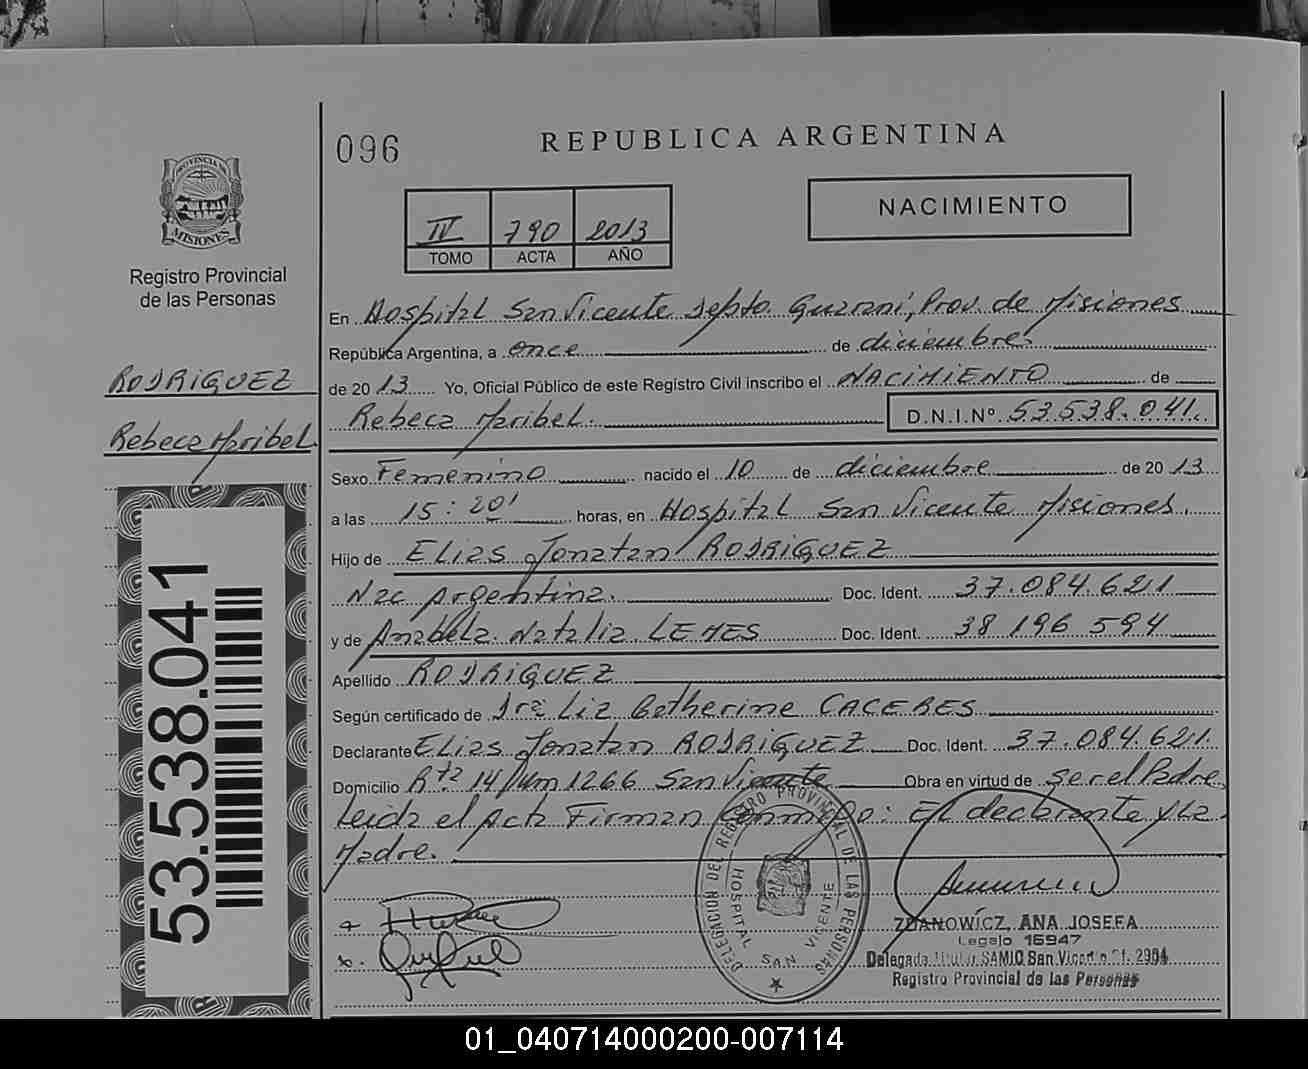 096
REPUBLICA ARGENTINA
PROVINCIA DE
MISIONES
Registro Provincial
de las Personas
IV 790 2013
TOMO ACTA AÑO
NACIMIENTO
RODRIGUEZ
Rebeca Maribel
53.538.041
En Hospital San Vicente Depto. Guarani, Prov. de Misiones
República Argentina, a once de diciembre
de 2013 Yo, Oficial Público de este Registro Civil inscribo el NACIMIENTO de
Rebeca Maribel. D.N.I.Nº 53.538.041.
Sexo Femenino nacido el 10 de diciembre de 2013
a las 15:20' horas, en Hospital San Vicente Misiones.
Hijo de Elias Jonatan RODRIGUEZ
Nac Argentina. Doc. Ident. 37.084.621
y de Anabela Natalia LEMES Doc. Ident. 38 196 594
Apellido RODRIGUEZ
Según certificado de Dra Liz Catherine CACERES
Declarante Elias Jonatan RODRIGUEZ Doc. Ident. 37.084.621.
Domicilio Rta 14 Km 1266 San Vicente Obra en virtud de ser el Padre
Leida el Acta Firman Conmigo: El declarante y La
Madre.
DELEGACION DEL REGISTRO PROVINCIAL DE LAS PERSONAS
HOSPITAL SAN VICENTE
ZDANOWICZ, ANA JOSEFA
Legajo 16947
Delegada Titular SAMIC San Vicente 2904
Registro Provincial de las Personas
01_040714000200-007114